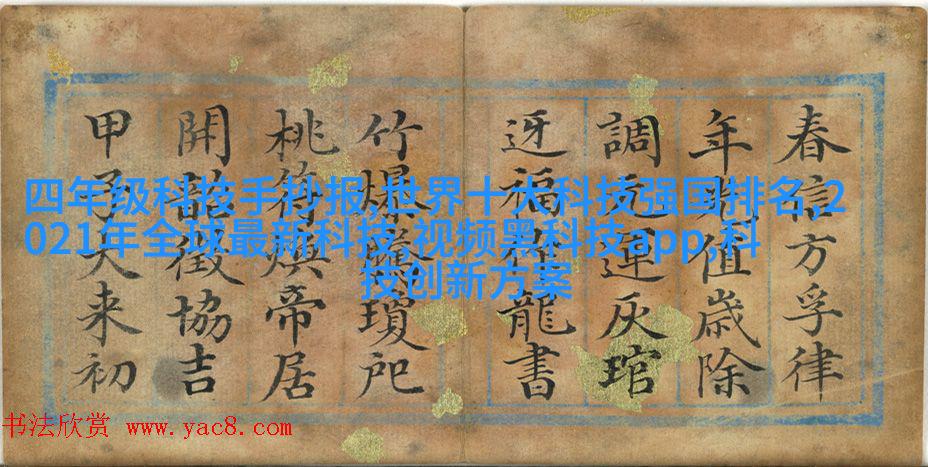 四年级科技手抄报,世界十大科技强国排名,2
021年全球最新科技,视频黑科技app,科
技创新方案
春信方孚律
年光值歲除
調元運灰琯
迓福龍書
竹爆騰瓊戺
桃符煥帝居
開韶徵協吉
甲子大來初
书法欣赏 www.yac8.com